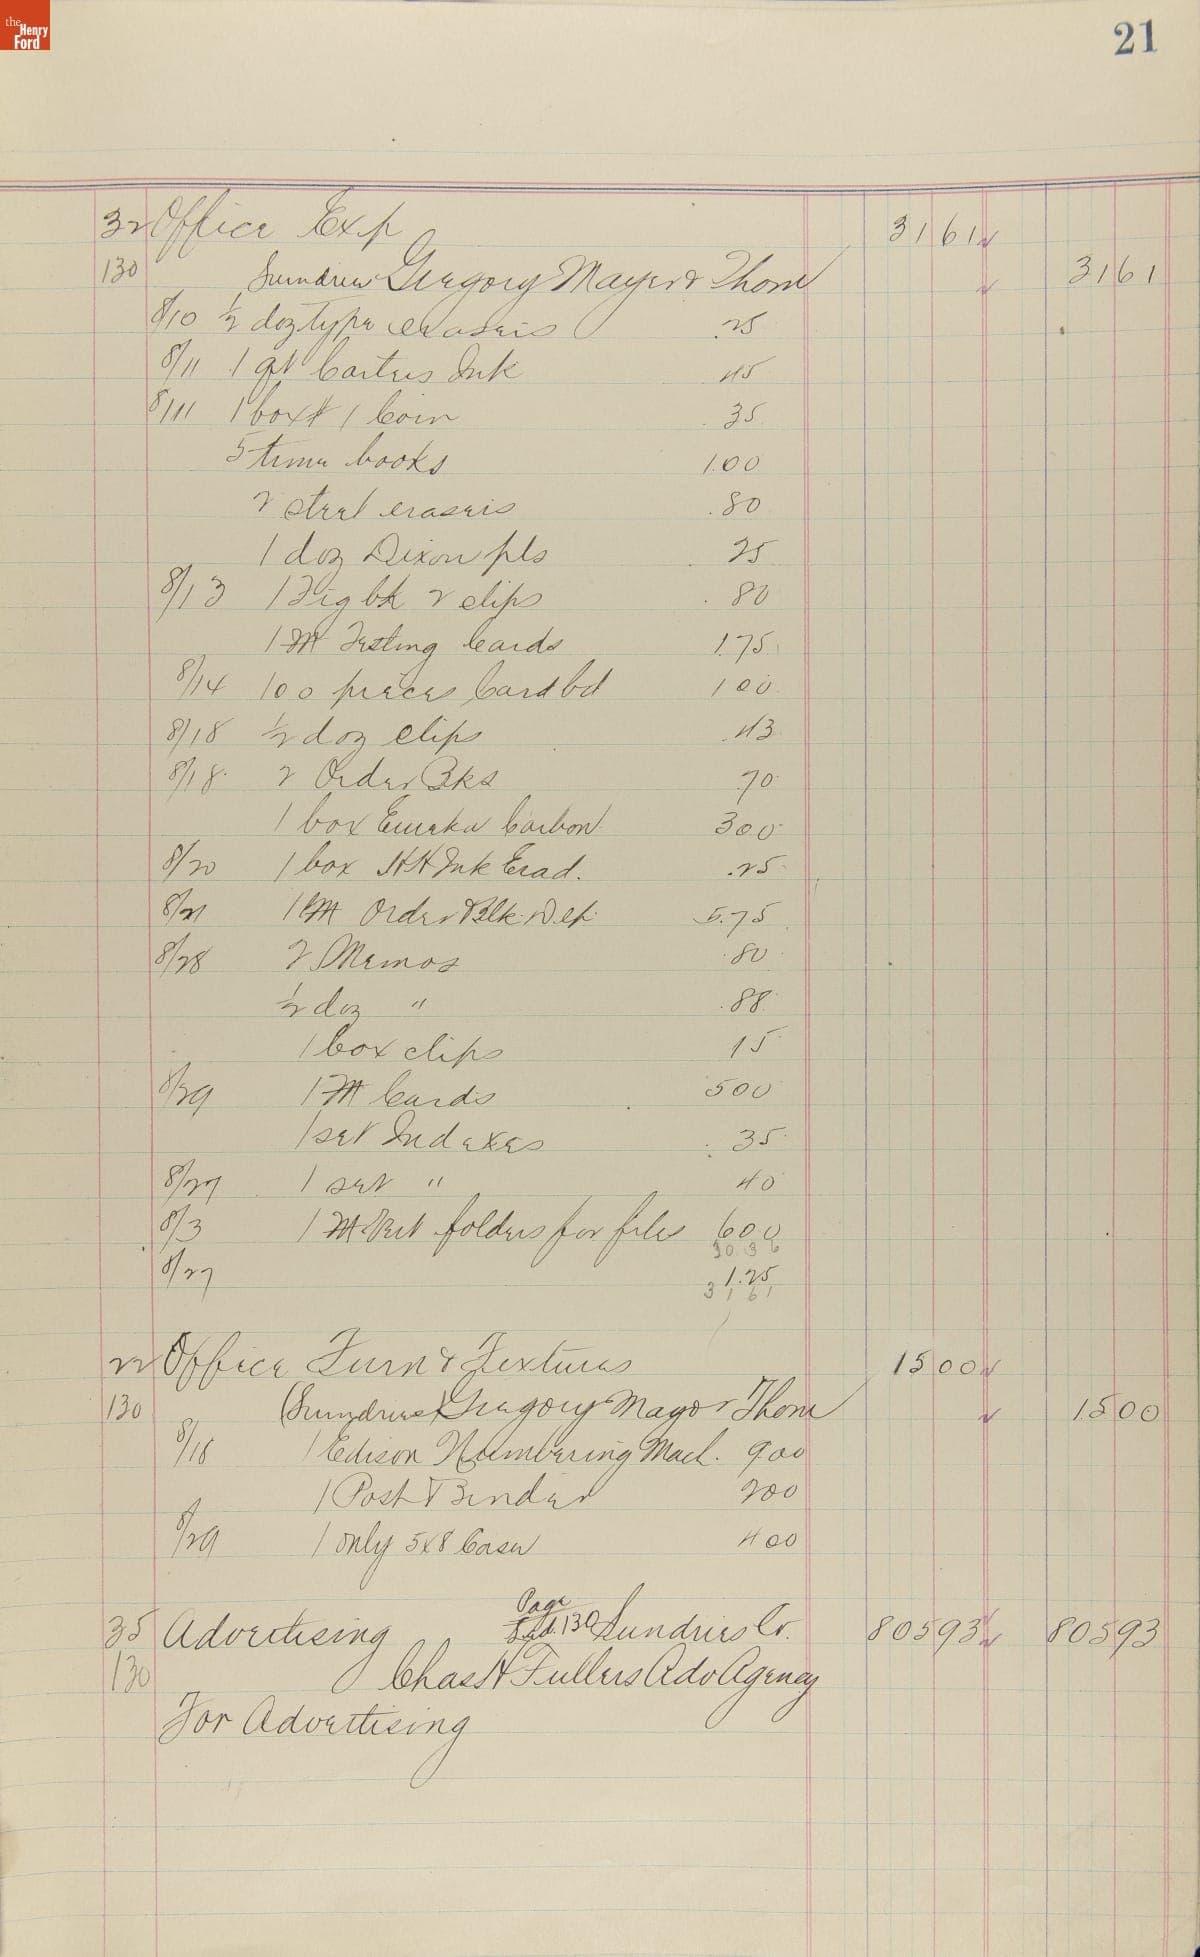 the Henry Ford
21
32 Office Exp 31 61
130 Sundries Gregory Mayer & Thom 31 61
8/10 1/2 doz type erasers .25
8/11 1 qt Carters Ink 45
8/11 1 box # 1 Coin .35
5 time books 1.00
2 steel erasers .80
1 doz Dixon pls .25
8/13 1 Fig bk 2 clips .80
1 M Testing Cards 1.75
8/14 100 pieces Cardbd 1 00
8/18 1/2 doz clips .43
8/18 2 Order Bks .70
1 box Eureka Carbon 3 00
8/20 1 box Ink Erad. .25
8/21 1 M Order Blk. Dep. 5.75
8/28 2 Memos .80
1/2 doz " .88
1 box clips 15
8/29 1 M Cards 5 00
1 set Indexes .35
8/27 1 set " 40
8/3 1 M folders for files 6 00
30 36
8/27 1.25
31 61
22 Office Furn & Fixtures 15 00
130 (Sundries) Gregory Mayer Thom 15 00
8/18 1 Edison Numbering Mach. 9 00
1 Post Binder 2 00
8/29 1 only 5x8 Case 4 00
Page
35 Advertising 130 Sundries Cr. 805 93 805 93
130 Chas H Fullers Adv Agency
For Advertising